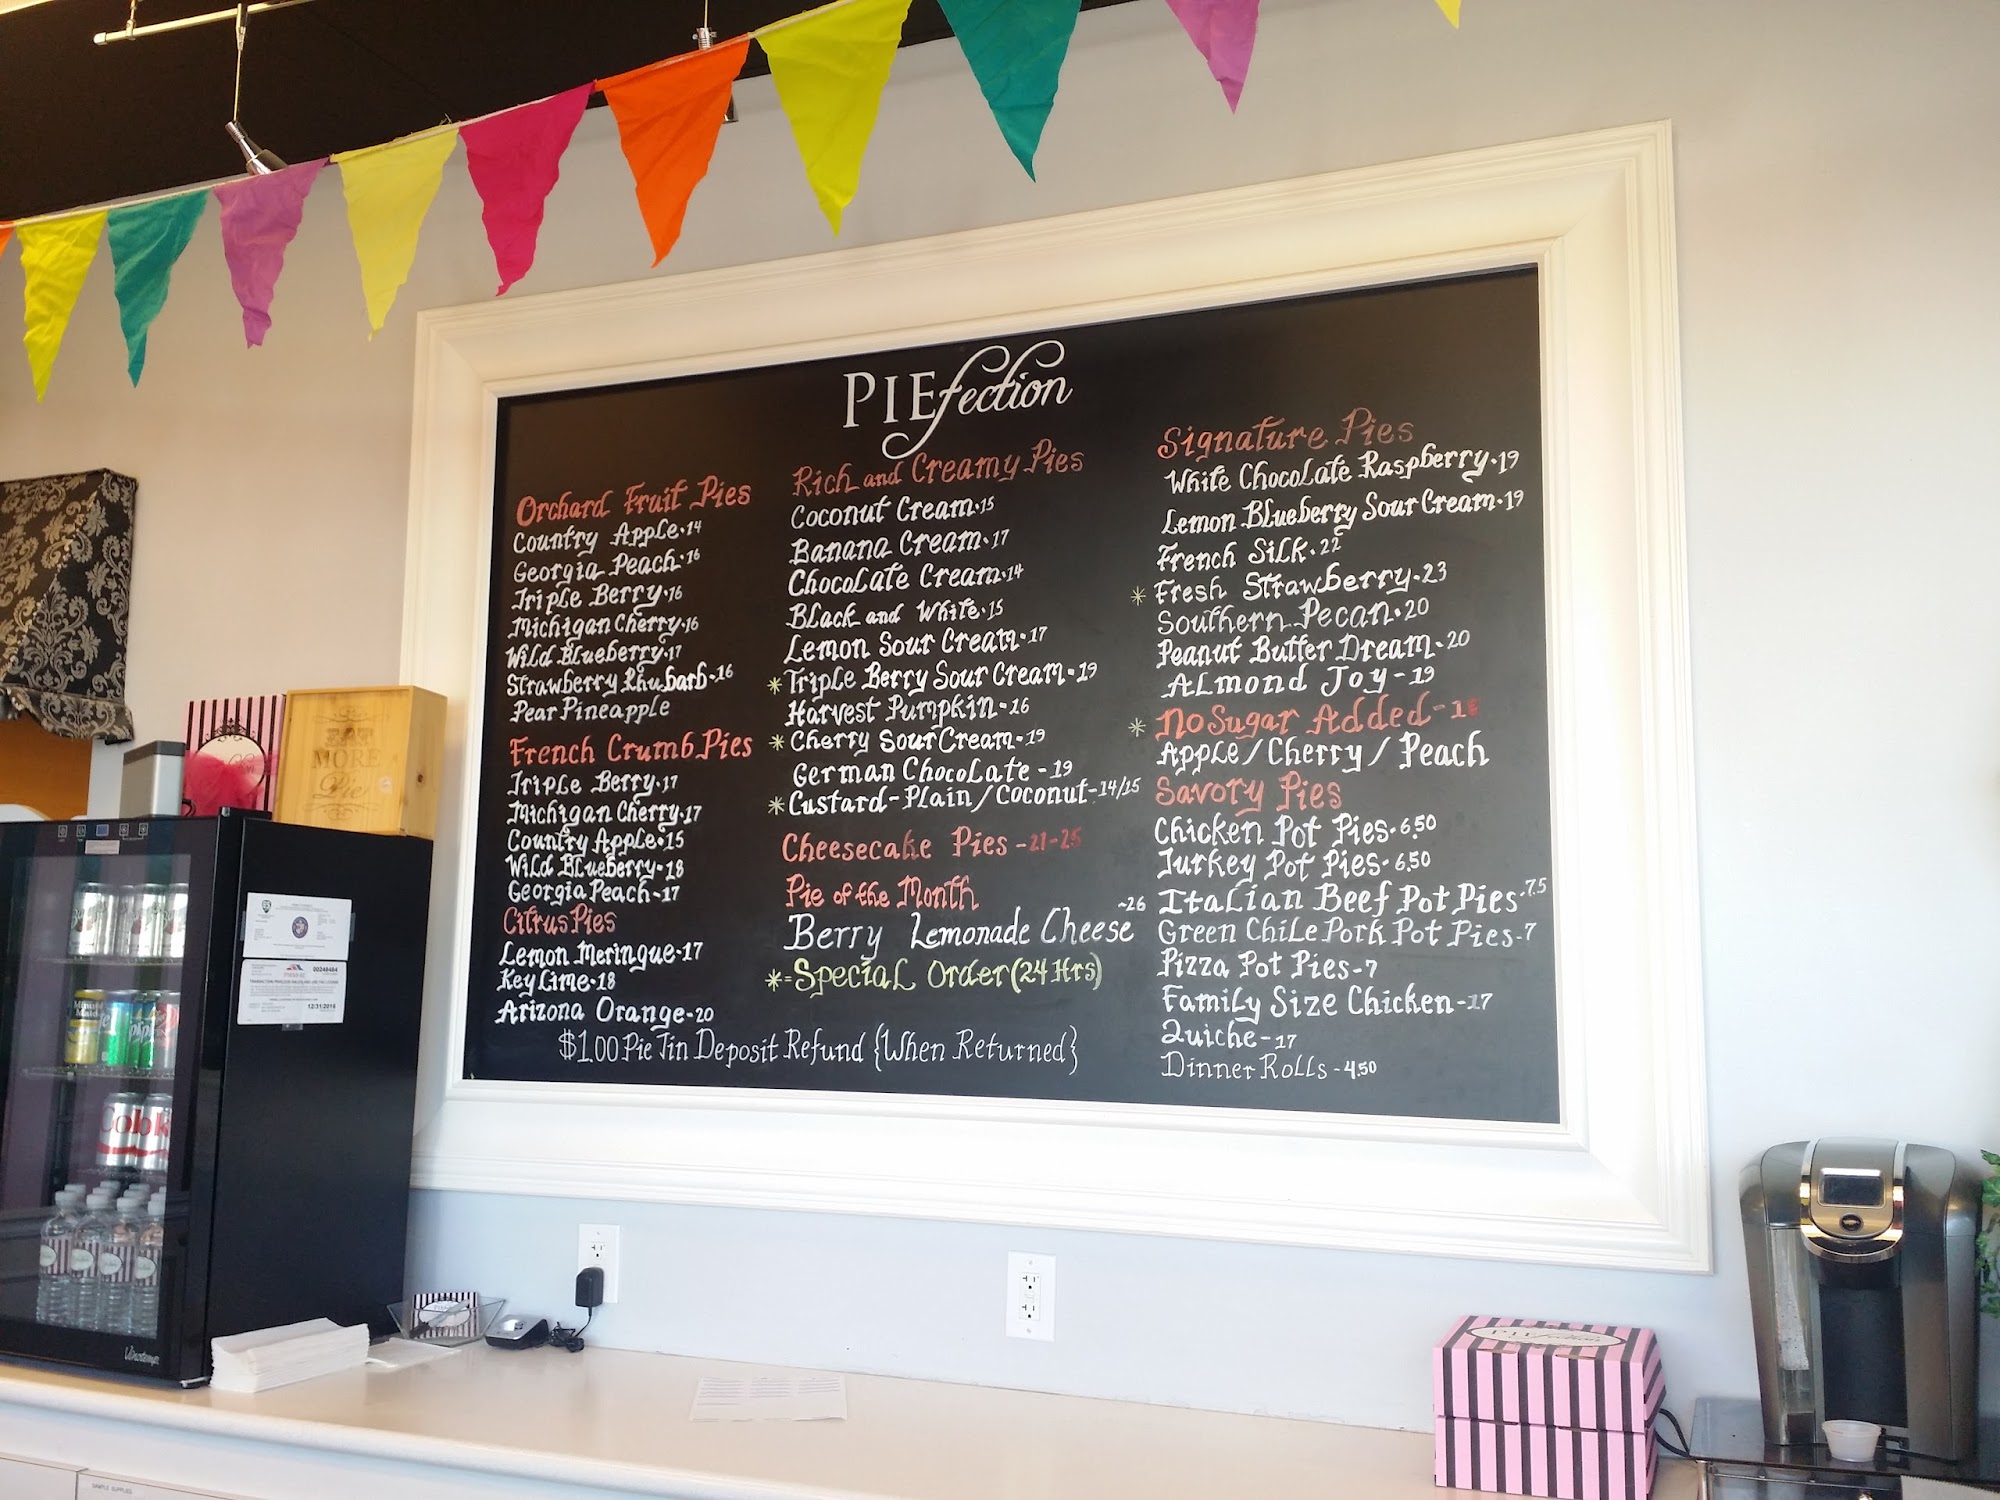 PIEfection
Orchard Fruit Pies
Country Apple·14
Georgia Peach·16
Triple Berry·16
Michigan Cherry·16
Wild Blueberry·17
Strawberry Rhubarb-16
Pear Pineapple
French Crumb Pies
Triple Berry·17
Michigan Cherry·17
Country Apple·15
Wild Blueberry-18
Georgia Peach-17
Citrus Pies
Lemon Meringue-17
Key Lime-18
Arizona Orange-20
Rich and Creamy Pies
Coconut Cream·15
Banana Cream·17
Chocolate Cream·14
Black and White·15
Lemon Sour Cream·17
*Triple Berry Sour Cream-19
Harvest Pumpkin-16
*Cherry Sour Cream-19
German Chocolate-19
*Custard-Plain/Coconut-14/15
Cheesecake Pies-21-25
Pie of the Month
Berry Lemonade Cheese ~26
*=Special Order(24 Hrs)
$1.00 Pie Tin Deposit Refund {When Returned}
Signature Pies
White Chocolate Raspberry·19
Lemon Blueberry Sour Cream·19
French Silk·22
*Fresh Strawberry·23
Southern Pecan·20
Peanut Butter Dream-20
Almond Joy-19
*No Sugar Added-
Apple/Cherry/Peach
Savory Pies
Chicken Pot Pies-6.50
Turkey Pot Pies-6.50
Italian Beef Pot Pies-7.5
Green Chile Pork Pot Pies-7
Pizza Pot Pies-7
Family Size Chicken-17
Quiche-17
Dinner Rolls-4.50
EAT
MORE
Pie
00248464
12/31/2016
Vinotemp
PIEfection
SAMPLE SUPPLIES